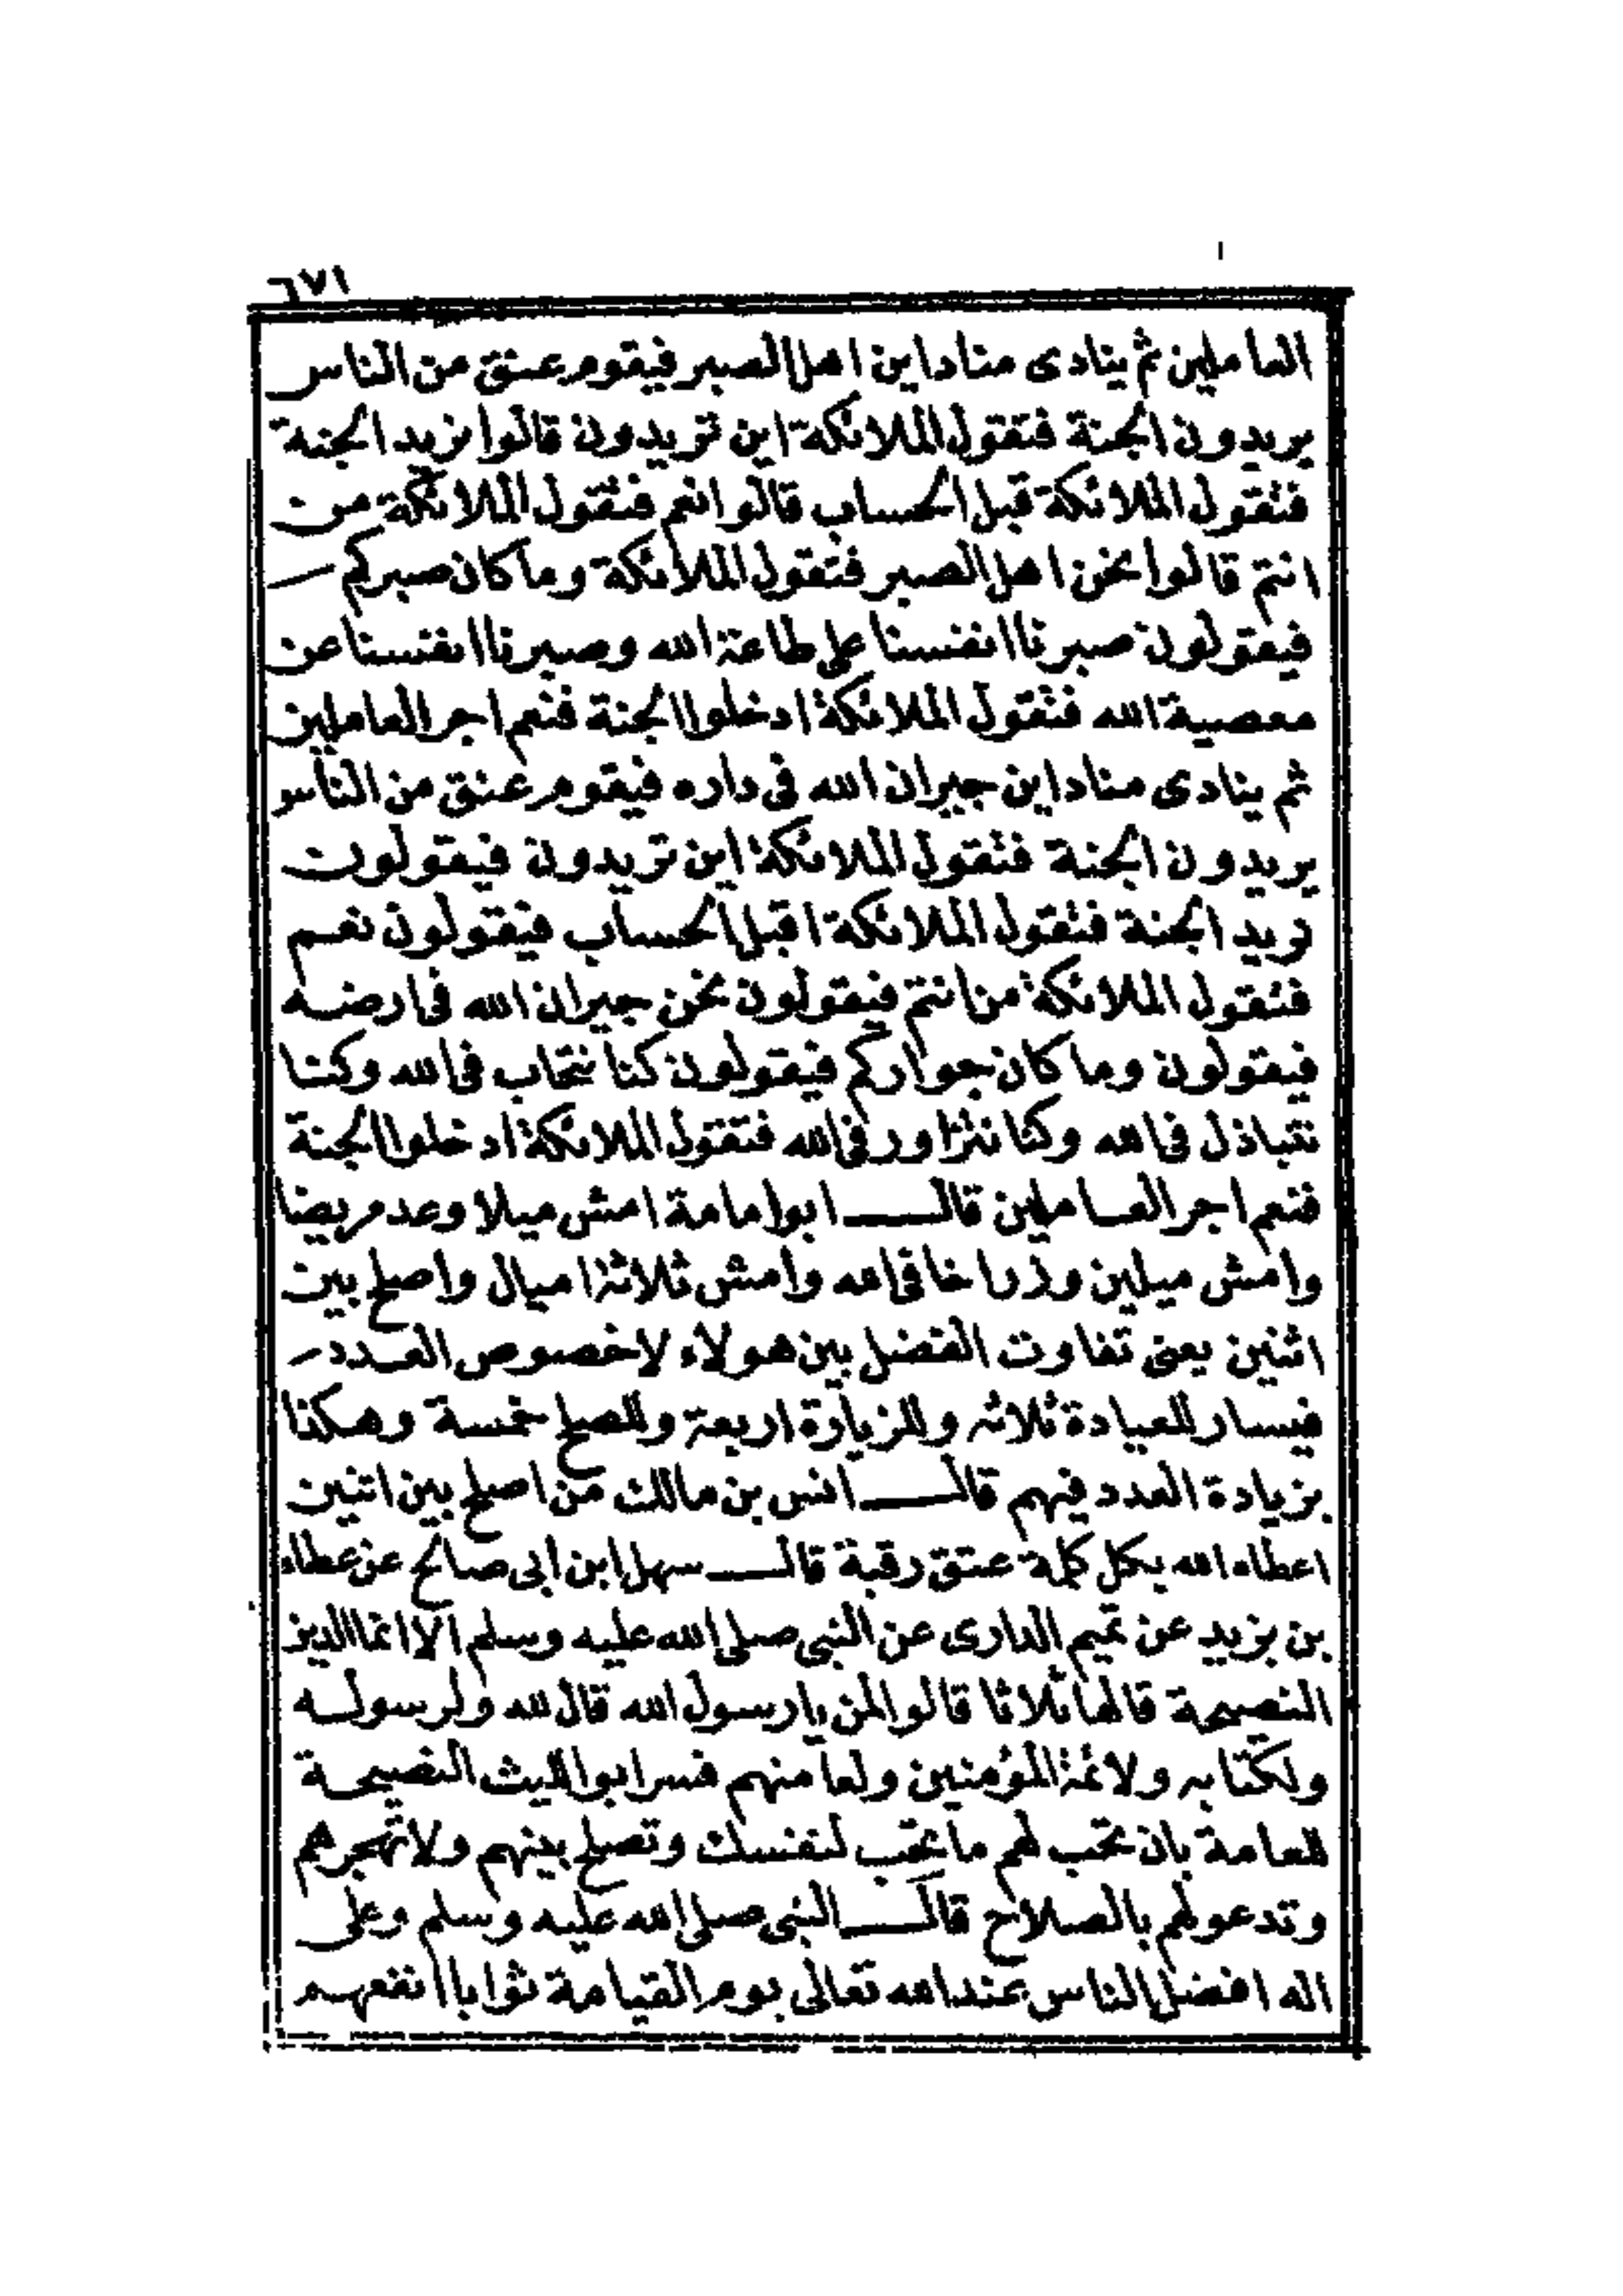 ٦٧١
العاملين ثم ينادى مناد اين اهل الصبر فيقوم عنق من الناس
يريدون الجنة فتقول الملائكة اين تريدون قالوا نريد الجنة
فتقول الملائكة قبل الحساب قالوا نعم فتقول الملائكة من
انتم قالوا نحن اهل الصبر فتقول الملائكة وما كان صبركم
فيقولون صبرنا انفسنا على طاعة الله وصبرنا انفسنا عن
معصية الله فتقول الملائكة ادخلوا الجنة فنعم اجر العاملين
ثم ينادى مناد اين جيران الله فى داره فيقوم عنق من الناس
يريدون الجنة فتقول الملائكة اين تريدون فيقولون
نريد الجنة فتقول الملائكة اقبل الحساب فيقولون نعم
فتقول الملائكة من انتم فيقولون نحن جيران الله فى ارضه
فيقولون وما كان جواركم فيقولون كنا نتحاب فى الله وكنا
نتباذل فى الله وكنا نتزاور فى الله فتقول الملائكة ادخلوا الجنة
فنعم اجر العاملين قال ابوا مامة امش ميلا وعد مريضا
وامش ميلين وزر اخا فى الله وامش ثلاثة اميال واصلح بين
اثنين يعنى تفاوت الفضل بين هولاء لا خصوص العدد
فيسار للعيادة ثلاثه وللزيارة اربعة وللصلح خمسة وهكذا
بزيادة العدد فيهم قال انس بن مالك من اصلح بين اثنين
اعطاه الله بكل كلمة عتق رقبة قال سهل ابن ابى صالح عن عطاء
بن يزيد عن تميم الدارى عن النبى صلى الله عليه وسلم الا انما الدين
النصيحة قالها ثلاثا قالوا لمن يا رسول الله قال لله ولرسوله
ولكتابه ولائمة المؤمنين ولعامنهم فسر ابوا الليث النصيحة
للعامة بان تحب لهم ما تحب لنفسك وتصلح بينهم ولا تهجرهم
وتدعولهم بالصلاح قال النبى صلى الله عليه وسلم وعلى
اله افضل الناس عند الله تعالى يوم القيامة ثوابا انفعهم